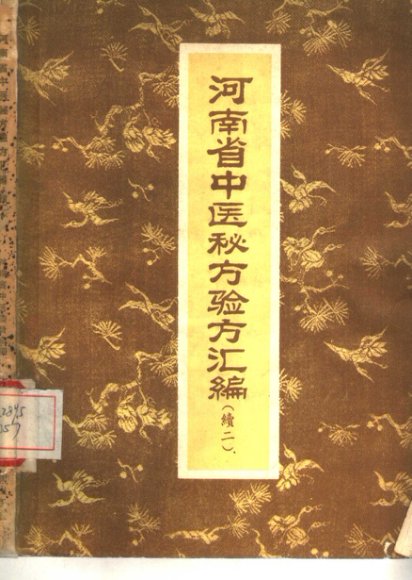 河南省中医秘方验方汇編
(續二)